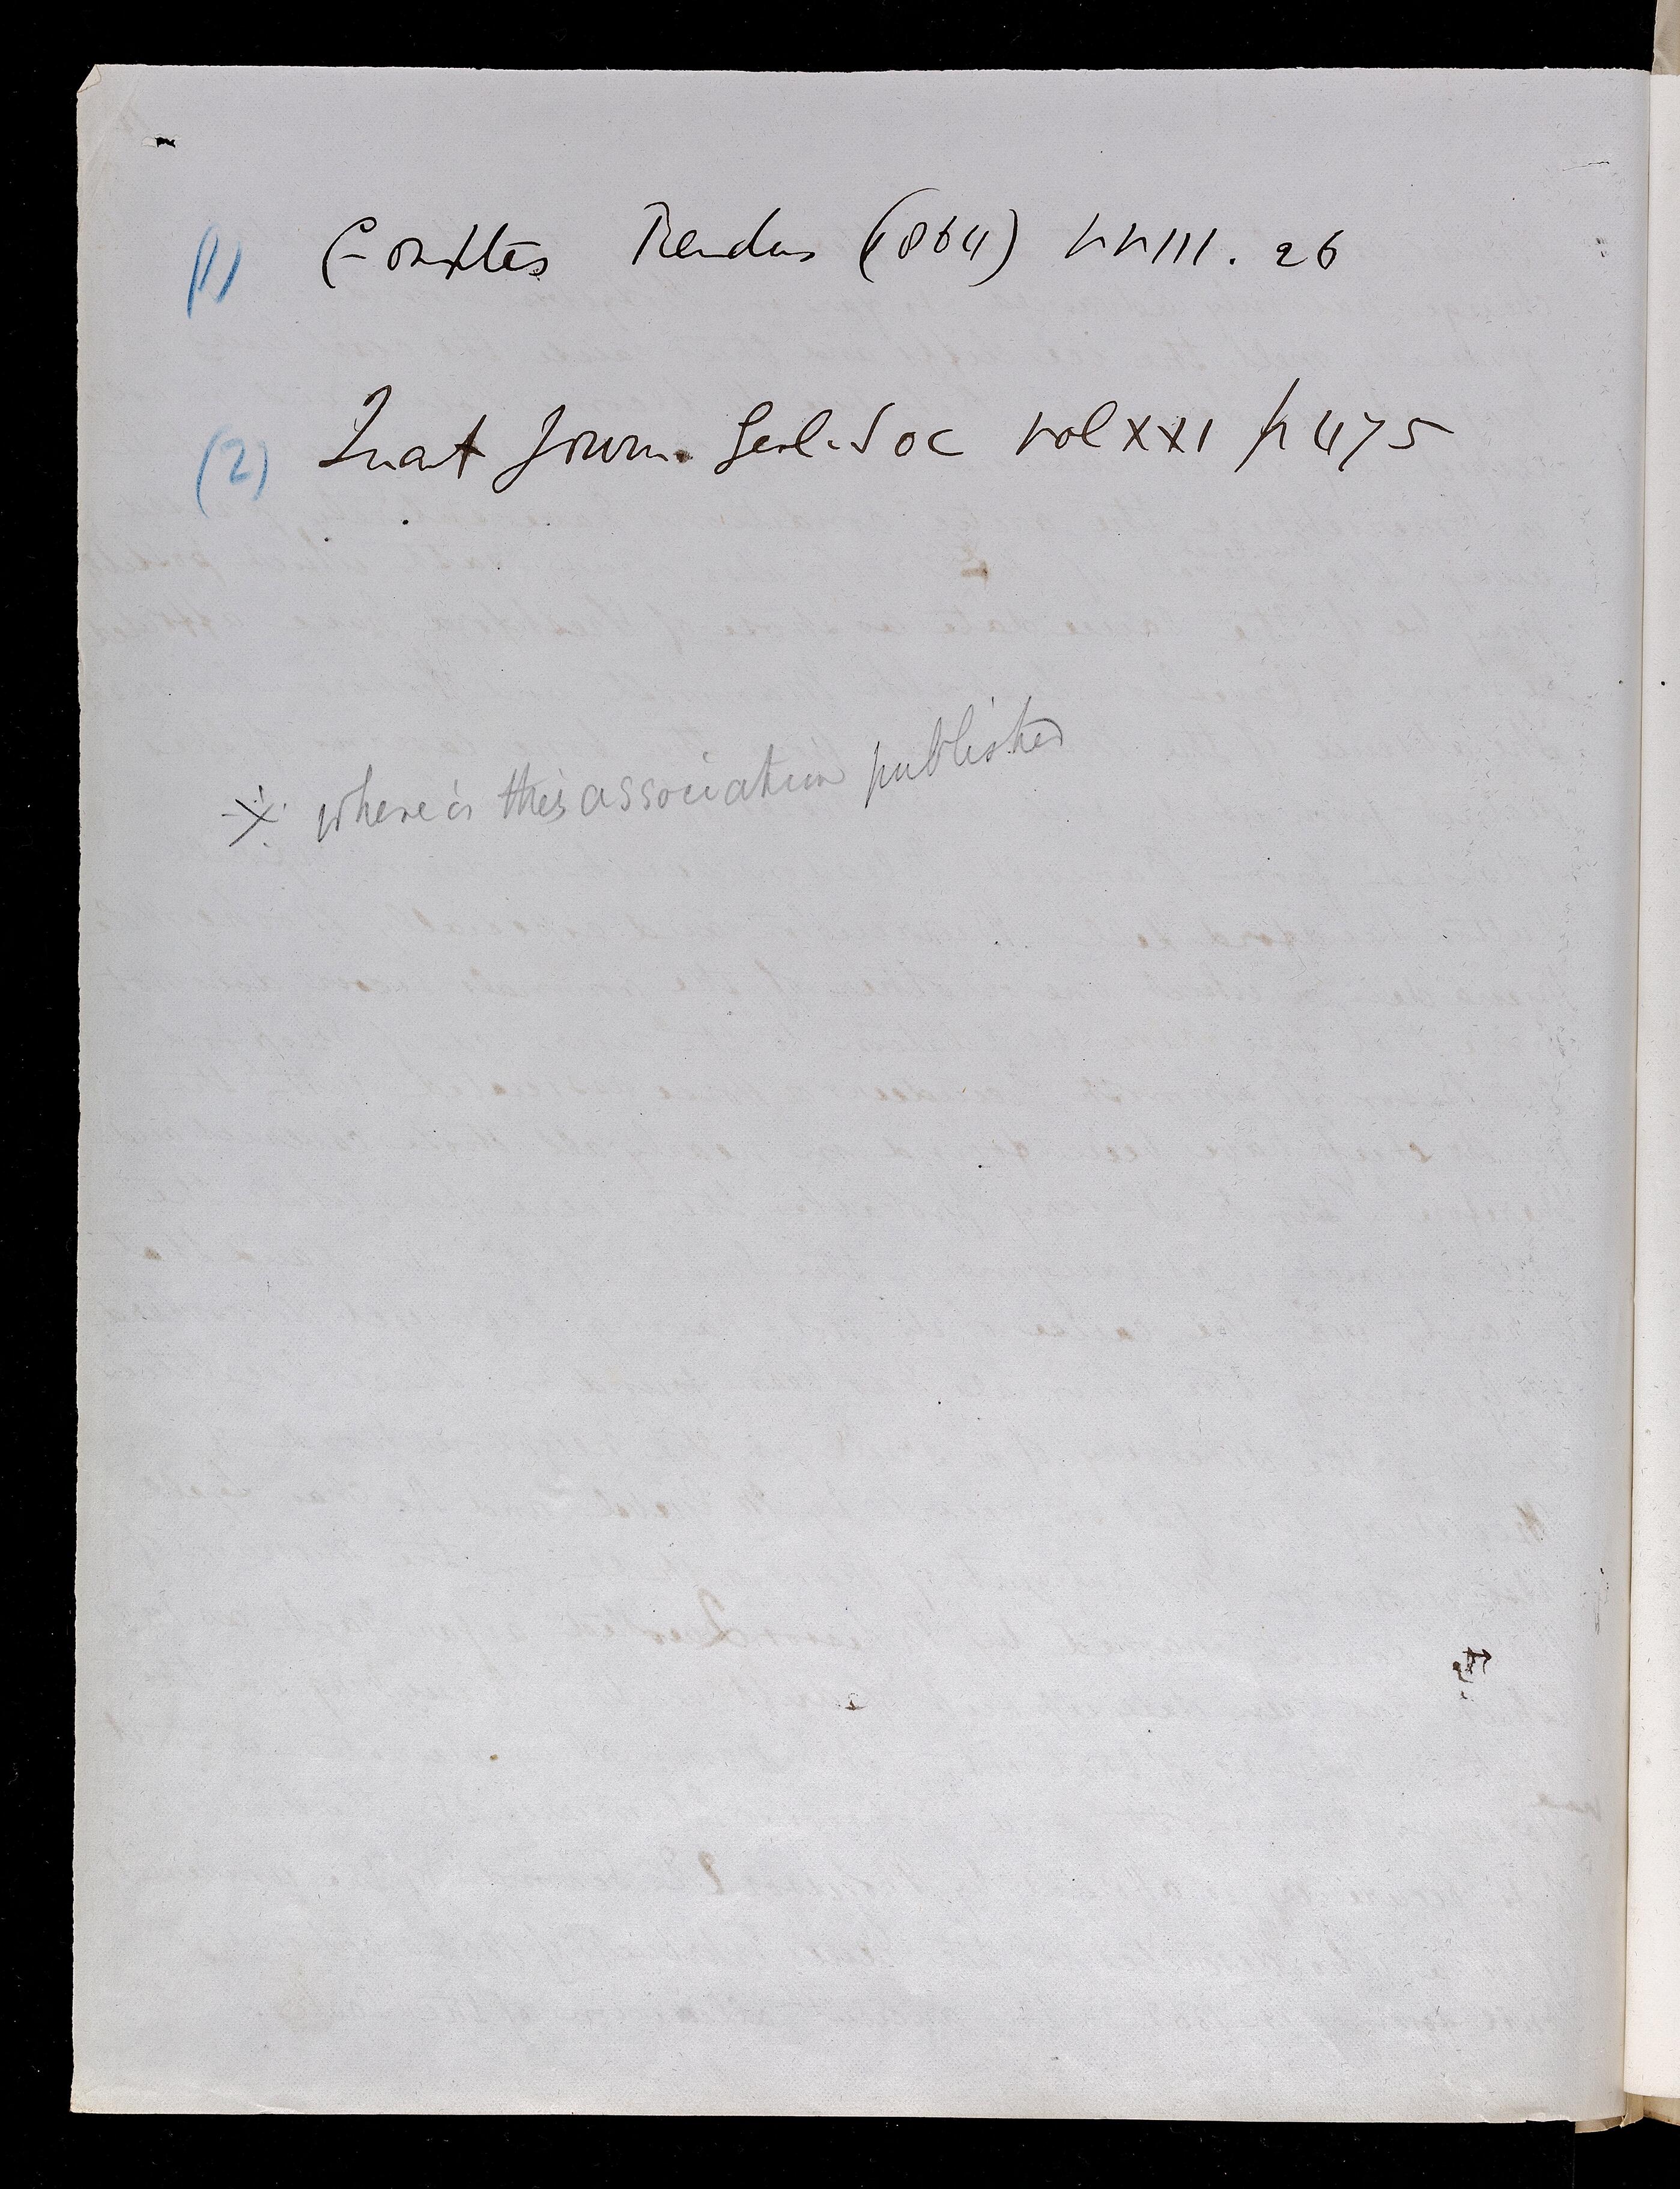 (1) Comptes Rendus (1864) VVIII. 26
(2) Quart Journ. Geol. Soc vol XXI p 475
※ where is this association published